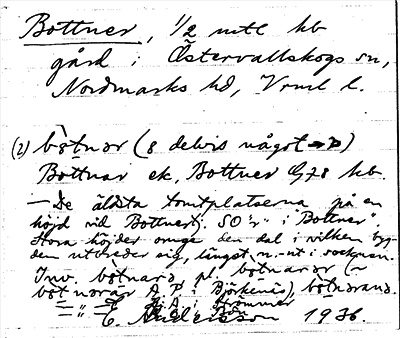 Bottner, 1/2 mtl kb
gård i Östervallskogs sn,
Nordmarks hd, Vrml l.
(2) bòtnar (8 delvis något → )
Bottnar ek. Bottner G78 kb.
— De äldsta tomtplatserna på en
höjd vid Bottnertj. SO "r" i "Bottner".
Stora höjder omge den dal i vilken byg-
den utbreder sig, längst n.-ut i socknen.
Inv. botnarə, pl. botnarər (~
botnarar A. P. i Björkenäs), botnarəns.
i Strömmer
1936.